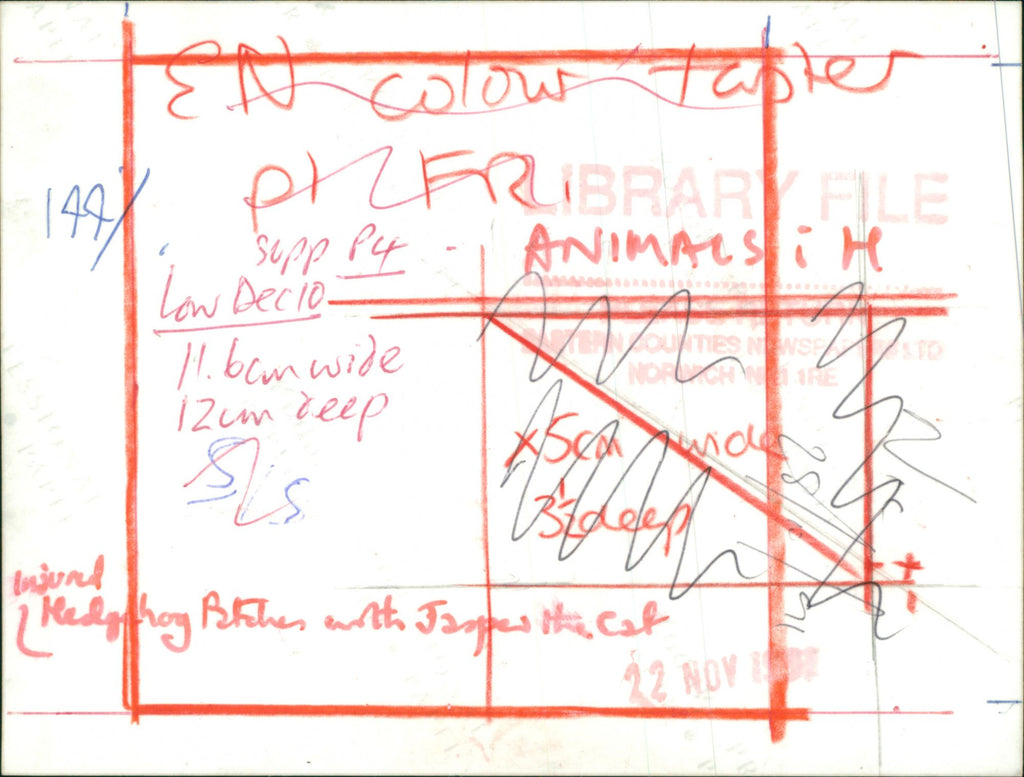 EN colour taster
P1 FRI
LIBRARY FILE
144/
supp P4
ANIMALS i H
Low Dec 10
EASTERN COUNTIES NEWSPAPERS LTD
NORWICH NR1 1RE
11.6cm wide
12cm deep
x 5cm wide
3½ deep
S/S
Injured
Hedgehog Patches with Jasper the Cat
22 NOV